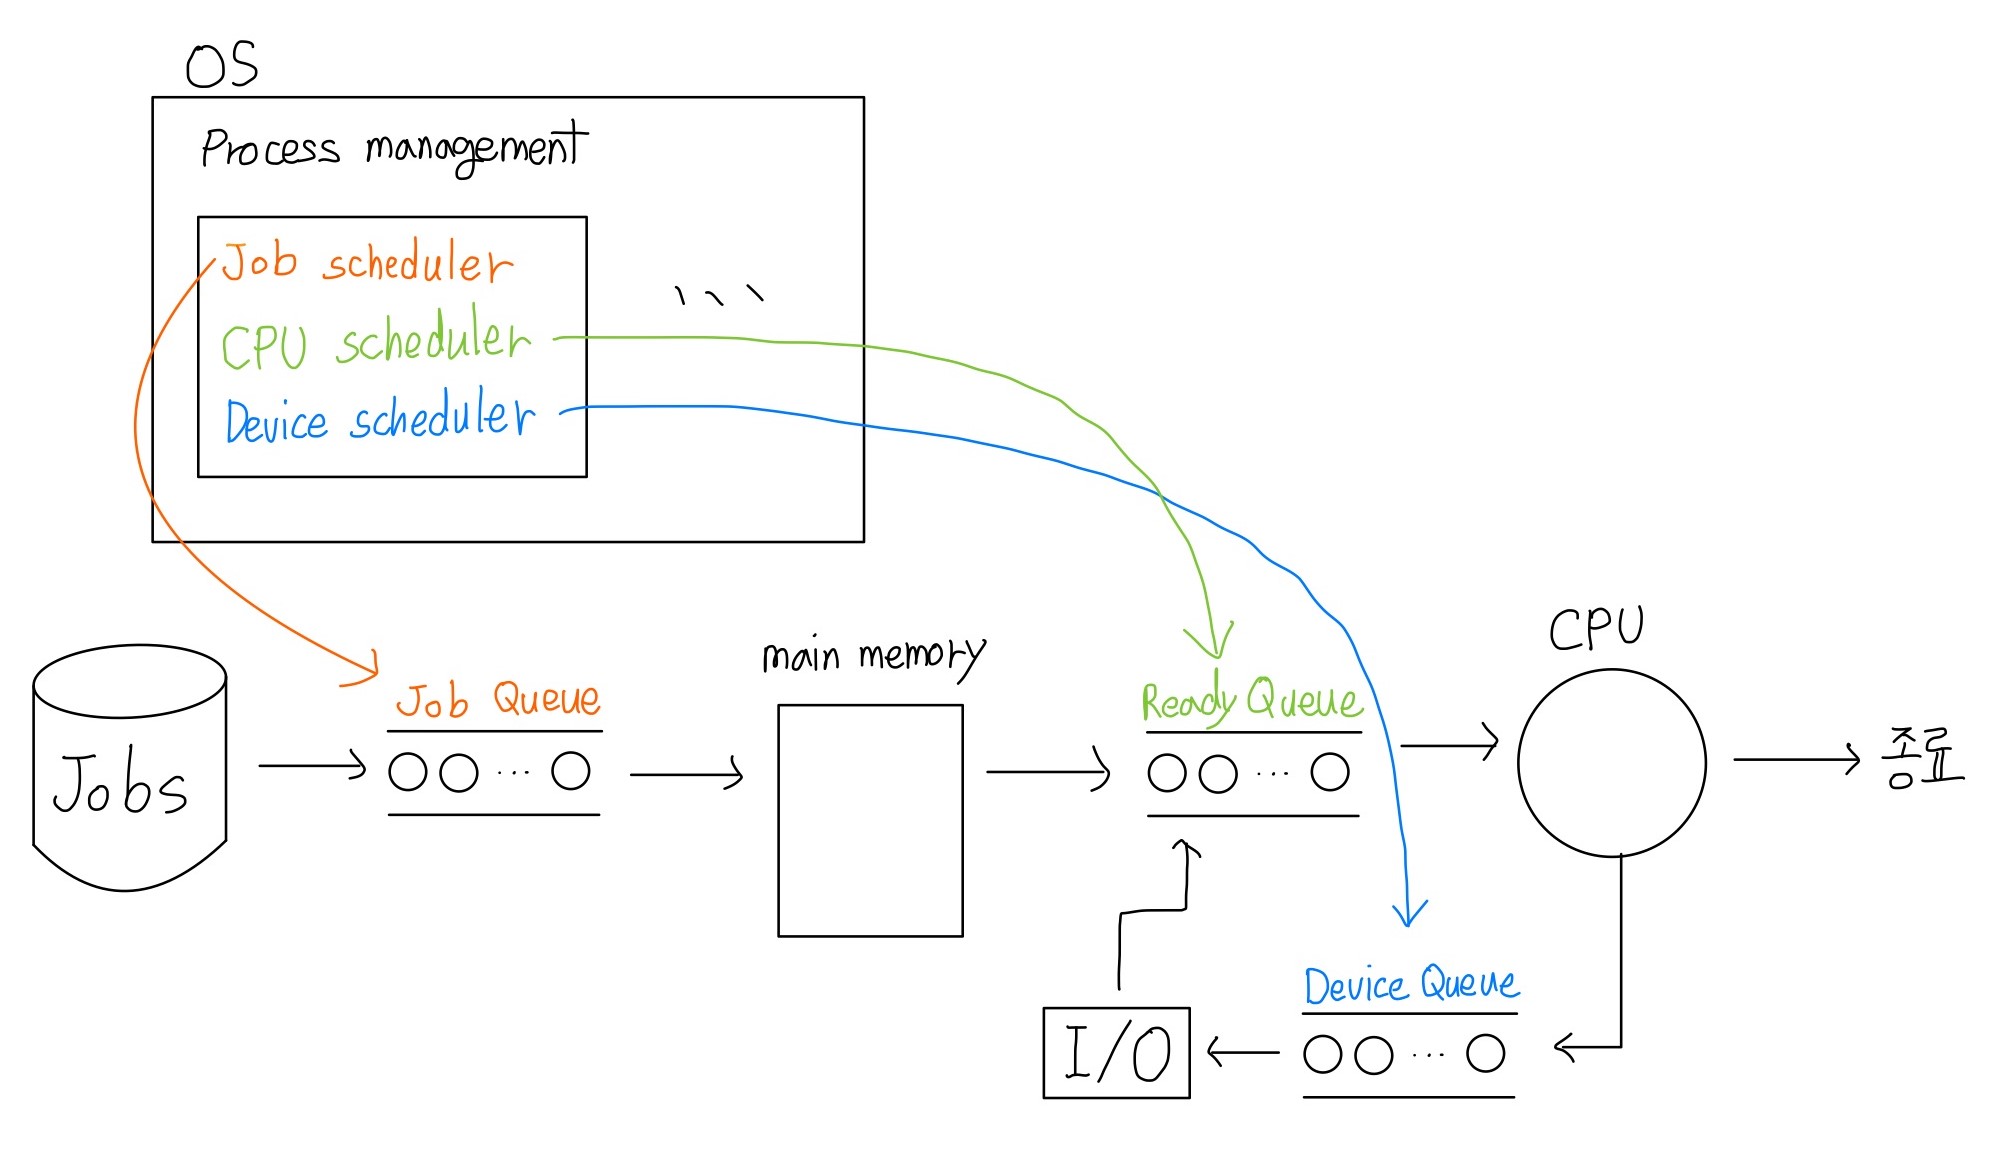 OS
Process management
Job scheduler
CPU scheduler
Device scheduler
...
Jobs
Job Queue
...
main memory
Ready Queue
...
CPU
종료
Device Queue
...
I/O